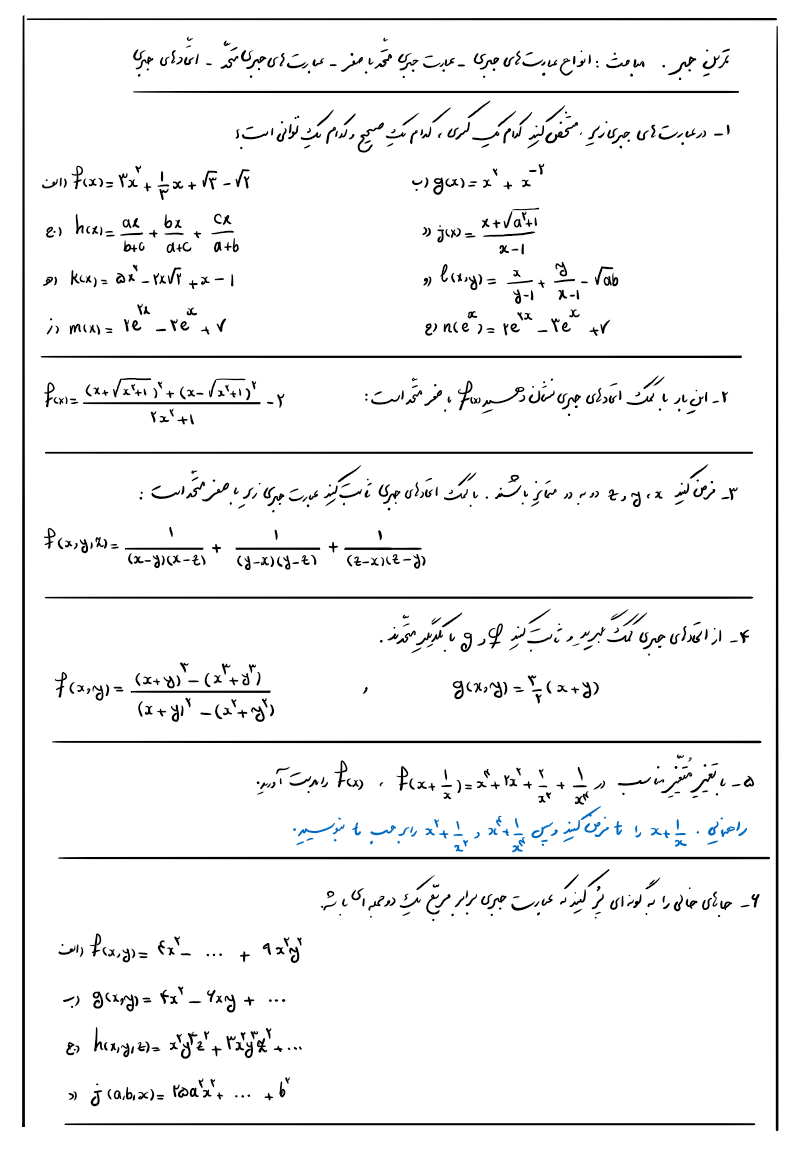 تمرین جبر . مباحث : انواع عبارت‌های جبری - عبارت جبری متحّد با صفر - عبارت‌های جبری متحّد - اتحّادهای جبری
۱- در عبارت‌های جبری زیر ، مشخّص کنید کدام یک کسری ، کدام یک صحیح و کدام یک توانی است؟
الف) f(x) = ۳x^۲ + ۱/۳ x + √۳ - √۲
ب) g(x) = x^۲ + x^-۲
ج) h(x) = ax/(b+c) + bx/(a+c) + cx/(a+b)
د) j(x) = (x+√(a^۲+۱))/(x-۱)
ه) k(x) = ۵x^۲ - ۲x√۲ + x - ۱
و) l(x,y) = x/(y-۱) + y/(x-۱) - √ab
ز) m(x) = ۲e^۲x - ۳e^x + ۷
ح) n(e^x) = ۲e^۲x - ۳e^x + ۷
۲- این بار با کمک اتحادهای جبری نشان دهید f(x) با صفر متحّد است :
f(x) = ((x+√(x^۲+۱))^۲ + (x-√(x^۲+۱))^۲)/(۲x^۲+۱) - ۲
۳- فرض کنید x ، y و z دو به دو متمایز باشند . با کمک اتحادهای جبری ثابت کنید عبارت جبری زیر با صفر متحّد است :
f(x,y,z) = ۱/((x-y)(x-z)) + ۱/((y-x)(y-z)) + ۱/((z-x)(z-y))
۴- از اتحادهای جبری کمک بگیرید و ثابت کنید f و g با یکدیگر متحّدند .
f(x,y) = ((x+y)^۳ - (x^۳+y^۳))/((x+y)^۲ - (x^۲+y^۲)) , g(x,y) = ۳/۲ (x+y)
۵- با تغییر متغّیر مناسب در f(x+۱/x) = x^۴ + ۲x^۲ + ۲/x^۲ + ۱/x^۴ ، f(x) را بدست آورید.
راهنمایی . x+۱/x را t فرض کنید و سپس x^۴+۱/x^۴ و x^۲+۱/x^۲ را بر حسب t بنویسید.
۶- جاهای خالی را به گونه‌ای پُر کنید که عبارت جبری برابر مربّع یک دو جمله‌ای باشد.
الف) f(x,y) = ۴x^۲ - ... + ۹x^۲y^۲
ب) g(x,y) = ۴x^۲ - ۶xy + ...
ج) h(x,y,z) = x^۲y^۴z^۲ + ۳x^۲y^۳z^۲ + ...
د) j(a,b,x) = ۲۵a^۲x^۲ + ... + b^۲